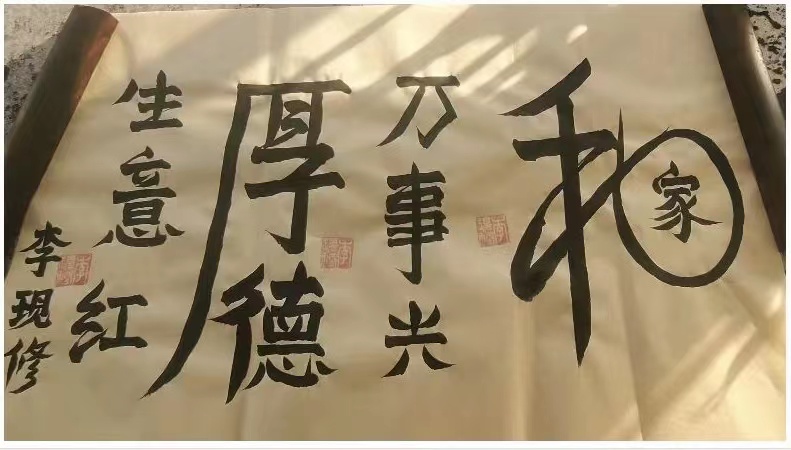 家和
万事兴
厚德
生意红
李现修